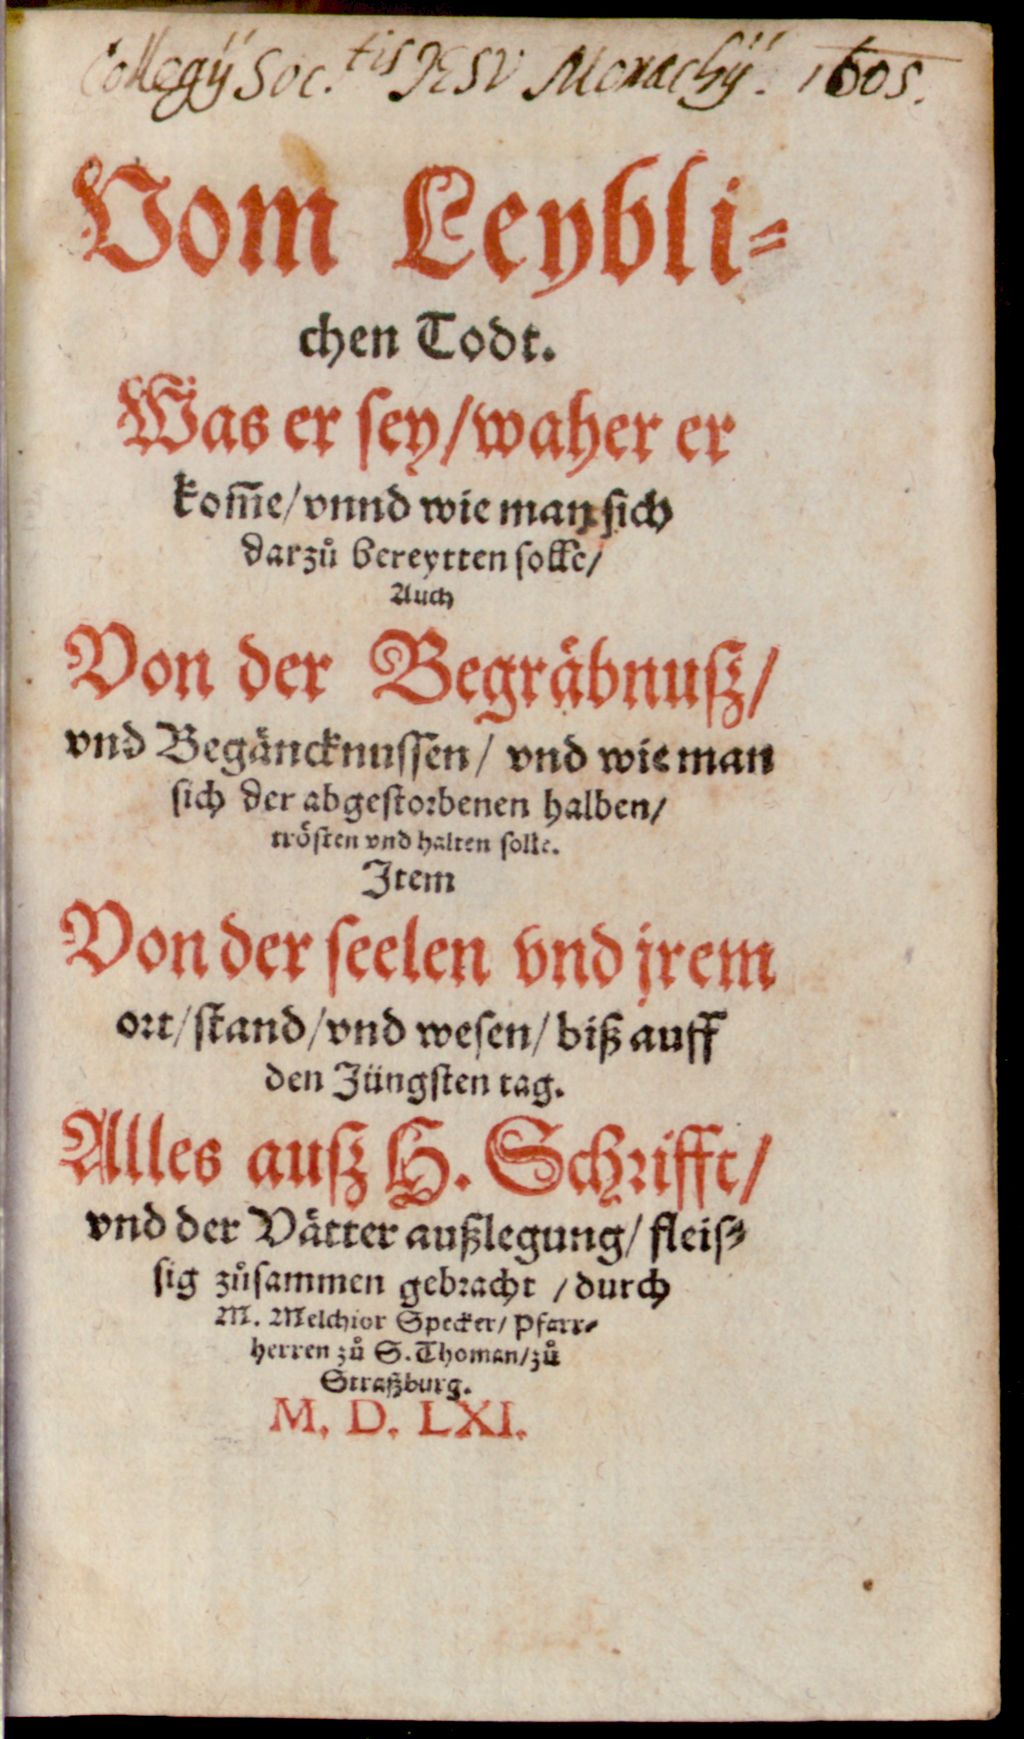 Collegÿ Soc.tis JESV Monachÿ. 1605.
Vom Leybli-
chen Todt.
Was er ſey/ waher er
kom̃e/ vnnd wie man ſich
darzů bereytten ſolle/
Auch
Von der Begräbnuſz/
vnd Begäncknuſſen/ vnd wie man
ſich der abgeſtorbenen halben/
tröſten vnd halten ſolle.
Item
Von der ſeelen vnd jrem
ort/ ſtand/ vnd weſen/ biß auff
den Jüngſten tag.
Alles auſz H. Schrifft/
vnd der Vätter außlegung/ fleiſ-
ſig zůſammen gebracht / durch
M. Melchior Specker/ Pfarr-
herren zů S. Thoman/ zů
Straßburg.
M. D. LXI.